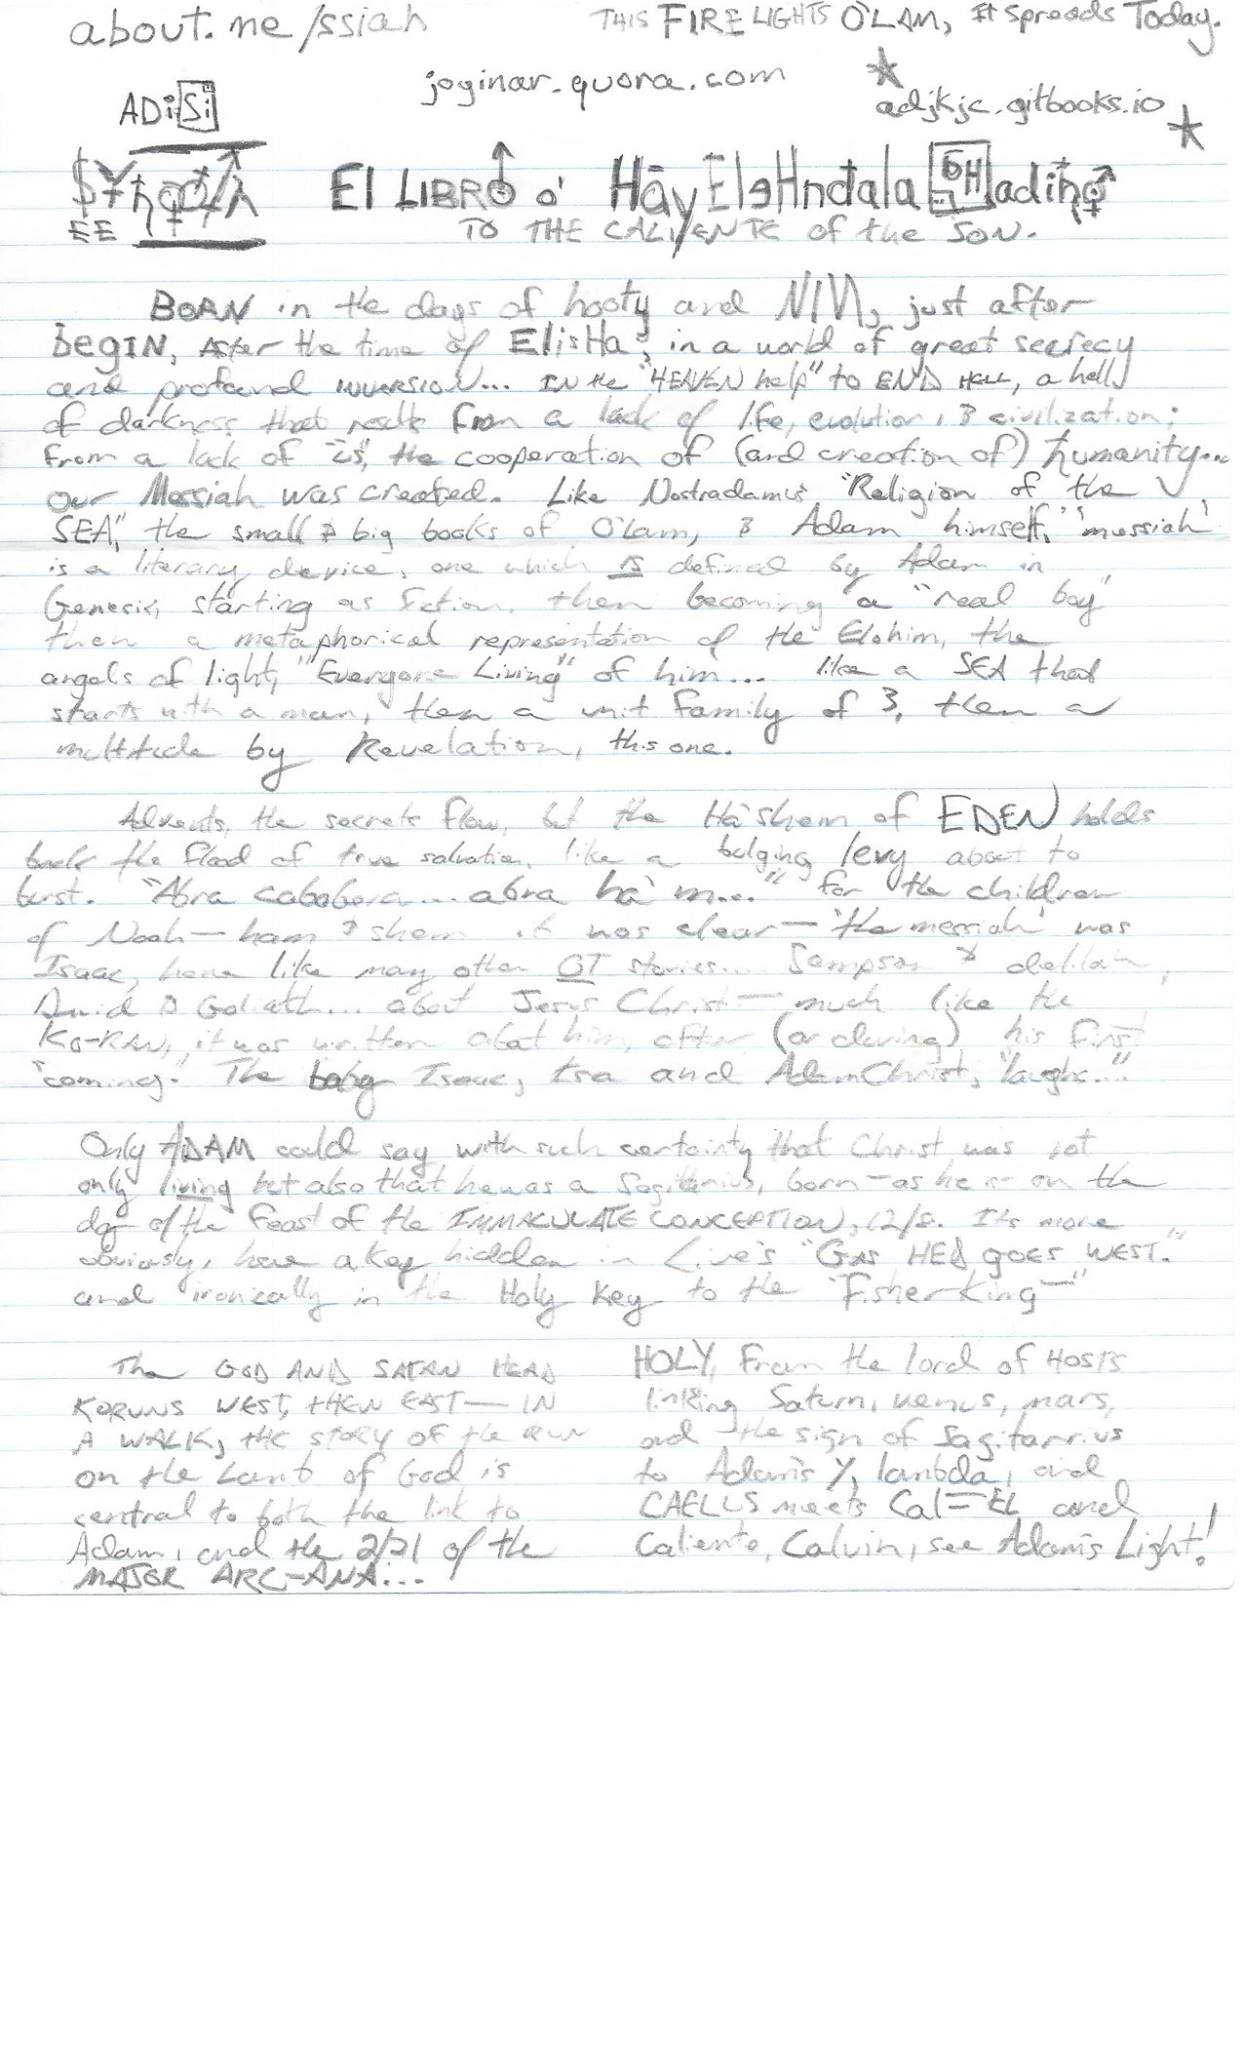 about.me/ssiah
THIS FIRE LIGHTS O'LAM, It spreads Today.
joginar.quora.com
adjkjc.gitbooks.io
ADiSi
EE
El LIBRO o'
TO THE CALIYENTE of the SON.
BORN in the days of hooty and NIN, just after
begIN, After the time of ElisHa, in a world of great secrecy
and profound INVERSION... IN the "HEAVEN help" to END HELL, a hell
of darkness that results from a lack of life, evolution, & civilization;
from a lack of "us", the cooperation of (and creation of) humanity...
our Messiah was created. Like Nostradamus' "Religion of the
SEA," the small & big books of O'Lam, & Adam himself, 'messiah'
is a literary device, one which is defined by Adam in
Genesis, starting as fiction, then becoming a "real boy"
then a metaphorical representation of the Elohim, the
angels of light, "Everyone Living" of him... like a SEA that
starts with a man, then a unit family of 3, then a
multitude by Revelation, this one.
Advents, the secrets flow, but the Ha'shem of EDEN holds
back the flood of true salvation, like a bulging levy about to
burst. "Abra cababora... abra ha'm..." for the children
of Noah—ham & shem it was clear—'the messiah' was
Isaac, here like many other OT stories... Sampson & delilah,
David & Goliath... about Jesus Christ—much like the
Ko-RAN, it was written about him, after (or during) his first
"coming." The baby Isaac, Isa and AdamChrist, "laughs..."
Only ADAM could say with such certainty that Christ was not
only living but also that he was a Sagittarius, born—as he is—on the
day of the Feast of the IMMACULATE CONCEPTION, 12/8. It's more
obviously, here a key hidden in Live's "GAS HED GOES WEST."
and ironically in the Holy Key to the "Fisher King—"
The GOD AND SATAN HEAD
KORUNS WEST, THEN EAST—IN
A WALK, THE STORY OF the RUN
on the Lamb of God is
central to both the link to
Adam, and the 2/21 of the
MAJOR ARC-ANA...
HOLY, From the lord of HOSTS
linking Saturn, venus, mars,
and the sign of Sagitarrius
to Adam's Y, lambda, and
CAELUS meets Cal=EL and
Caliente, Calvin, see Adam's Light!